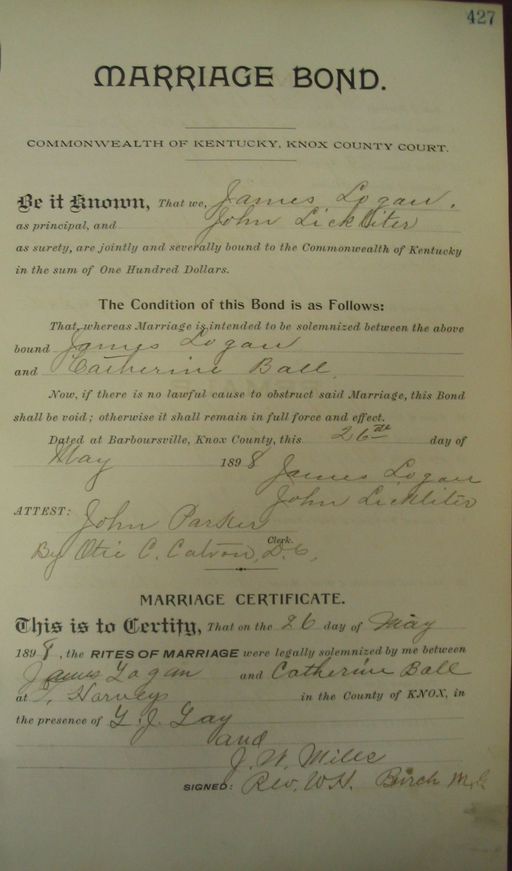 427
MARRIAGE BOND.
COMMONWEALTH OF KENTUCKY, KNOX COUNTY COURT.
Be it Known, That we, James Logan.
as principal, and John Lickliter
as surety, are jointly and severally bound to the Commonwealth of Kentucky
in the sum of One Hundred Dollars.
The Condition of this Bond is as Follows:
That, whereas Marriage is intended to be solemnized between the above
bound James Logan
and Catherine Ball
Now, if there is no lawful cause to obstruct said Marriage, this Bond
shall be void; otherwise it shall remain in full force and effect.
Dated at Barboursville, Knox County, this 26th day of
May 1898 James Logan
John Lickliter
ATTEST: John Parker
Clerk.
By Otie C. D.C.
MARRIAGE CERTIFICATE.
This is to Certify, That on the 26 day of May
1898, the RITES OF MARRIAGE were legally solemnized by me between
James Logan and Catherine Ball
at Harveys in the County of KNOX, in
the presence of
and
J. W. Mills
SIGNED: Rev. W.H. Birch